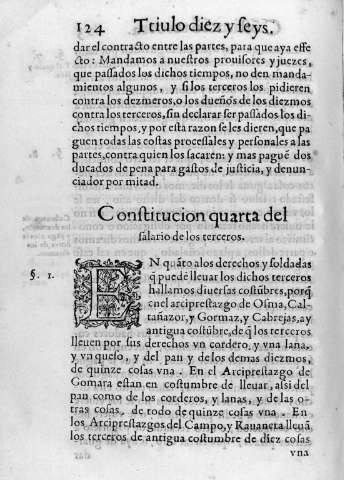 124 Ttiulo diez y seys.
dar el contracto entre las partes, para que aya effe
cto: Mandamos a nuestros prouisores y juezes,
que passados los dichos tiempos, no den manda-
mientos algunos, y si los terceros los pidieren
contra los dezmeros, o los dueños de los diezmos
contra los terceros, sin declarar ser passados los di-
chos tiempos, y por esta razon se les dieren, que pa
guen todas las costas processales y personales a las
partes, contra quien los sacaren: y mas pague dos
ducados de pena para gastos de justicia, y denun-
ciador por mitad.
Constitucion quarta del
salario de los terceros.
§. 1. EN quãto a los derechos y soldadas
q̃ puedẽ lleuar los dichos terceros
hallamos diuersas costũbres, porq̃
en el arciprestazgo de Osma, Cal-
tañazor, y Gormaz, y Cabrejas, ay
antigua costũbre, de q̃ los terceros
lleuen por sus derechos vn cordero, y vna lana,
y vn queso, y del pan y de los demas diezmos,
de quinze cosas vna. En el Arciprestazgo de
Gomara estan en costumbre de lleuar, assi del
pan como de los corderos, y lanas, y de las o-
tras cosas, de todo de quinze cosas vna. En
los Arciprestazgos del Campo, y Rauaneta lleuã
los terceros de antigua costumbre de diez cosas
vna